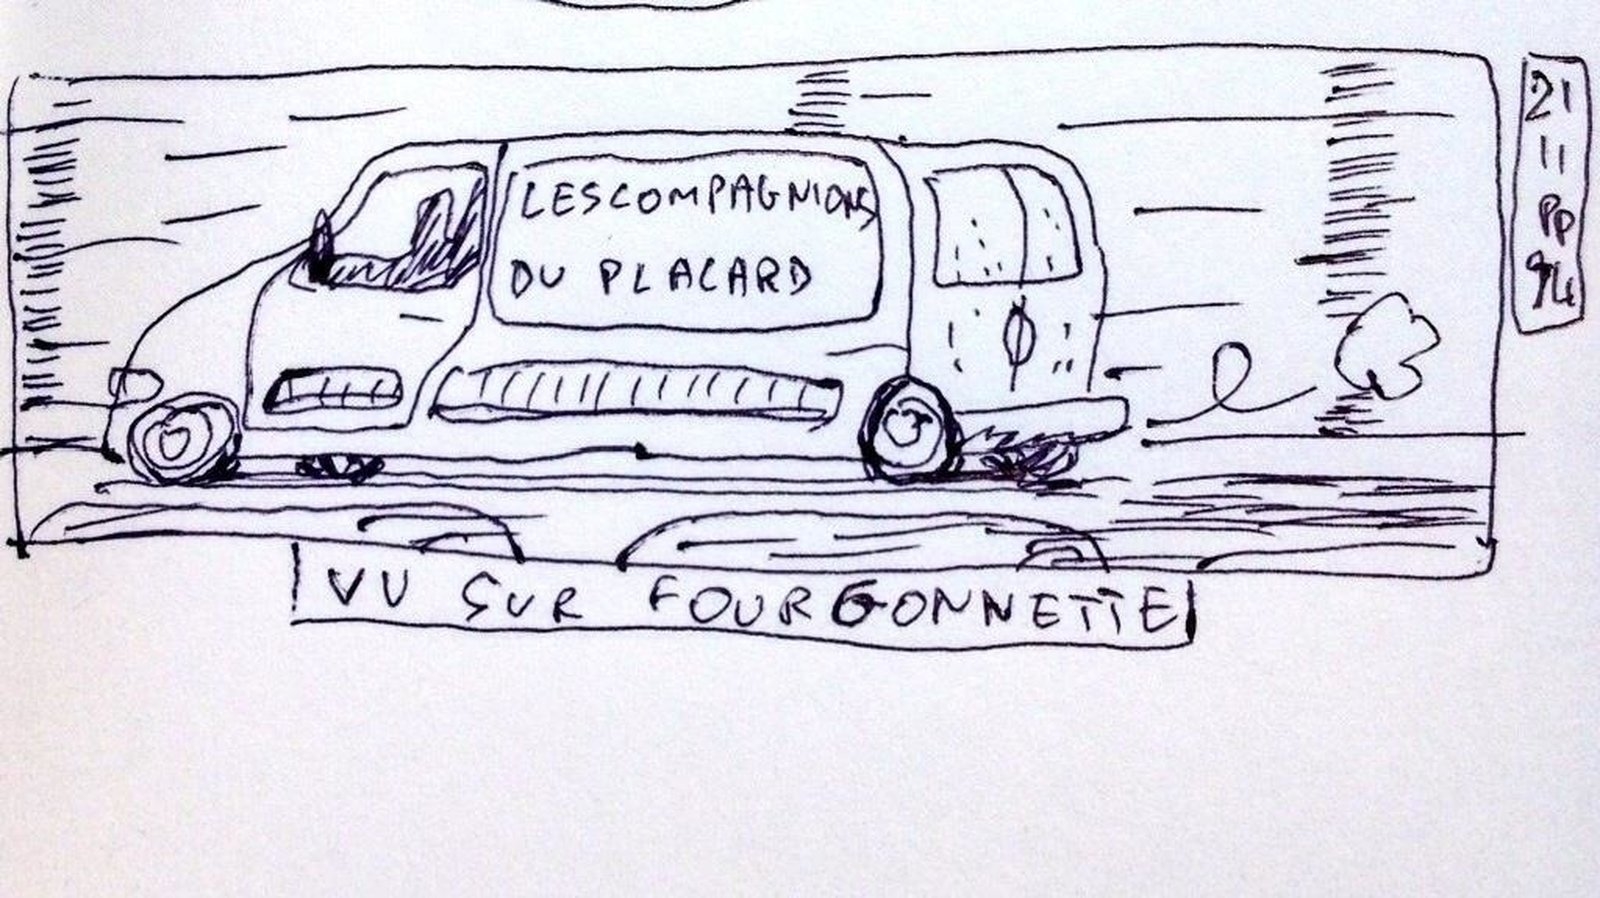 LES COMPAGNIONS
DU PLACARD
21
11
PP
94
VU SUR FOURGONNETTE